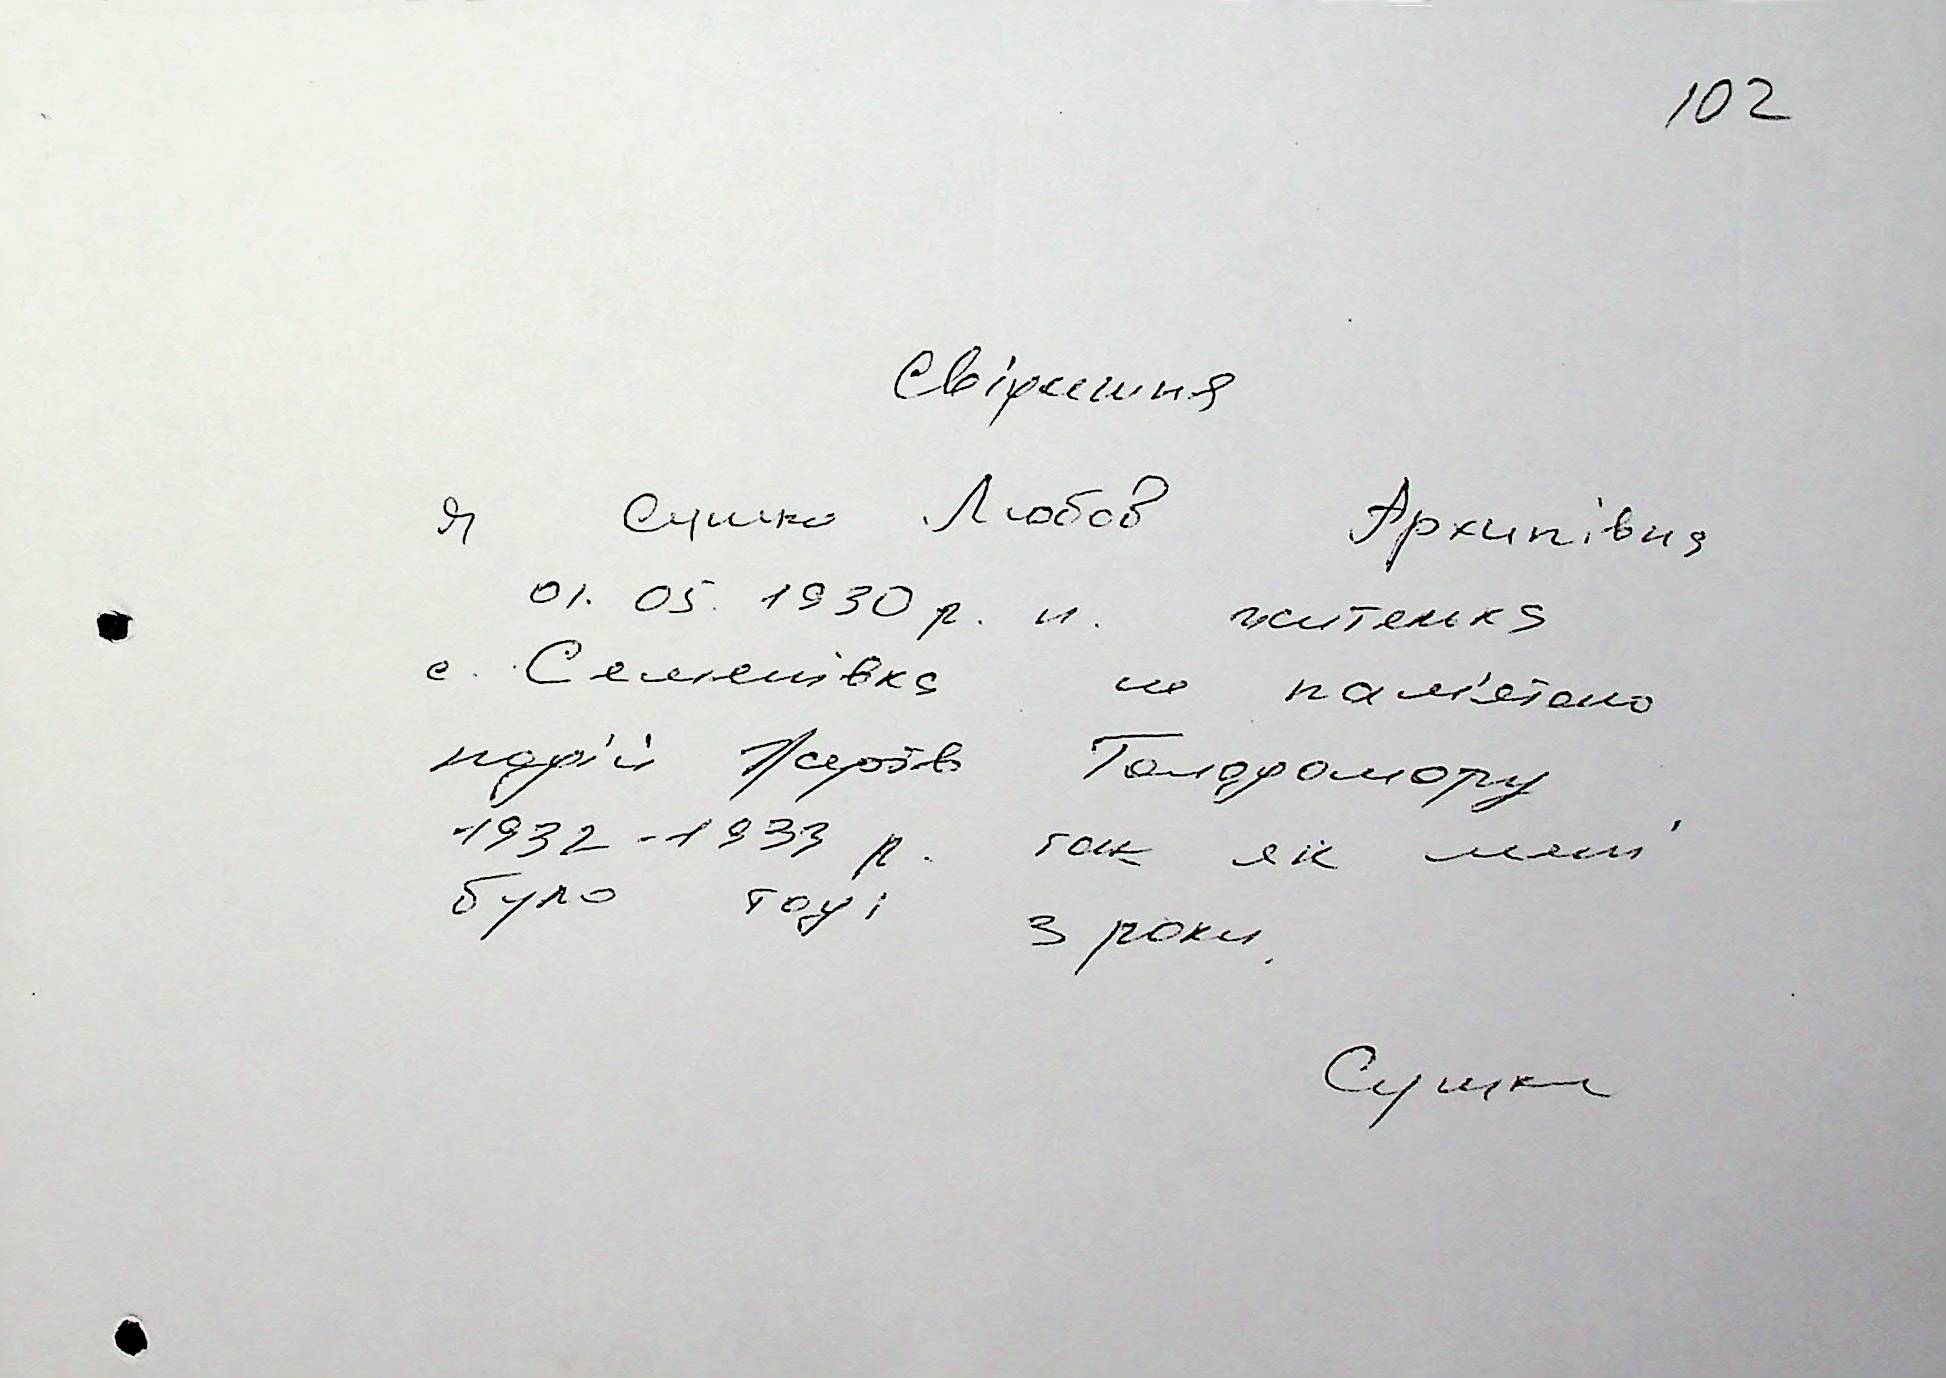 102
Свідчення
Я Сушко Любов Архипівна
01.05.1930 р. н. жителька
с. Семенівка не пам'ятаю
подій Голодомору
1932-1933 р. так як мені
було тоді 3 роки.
Сушко